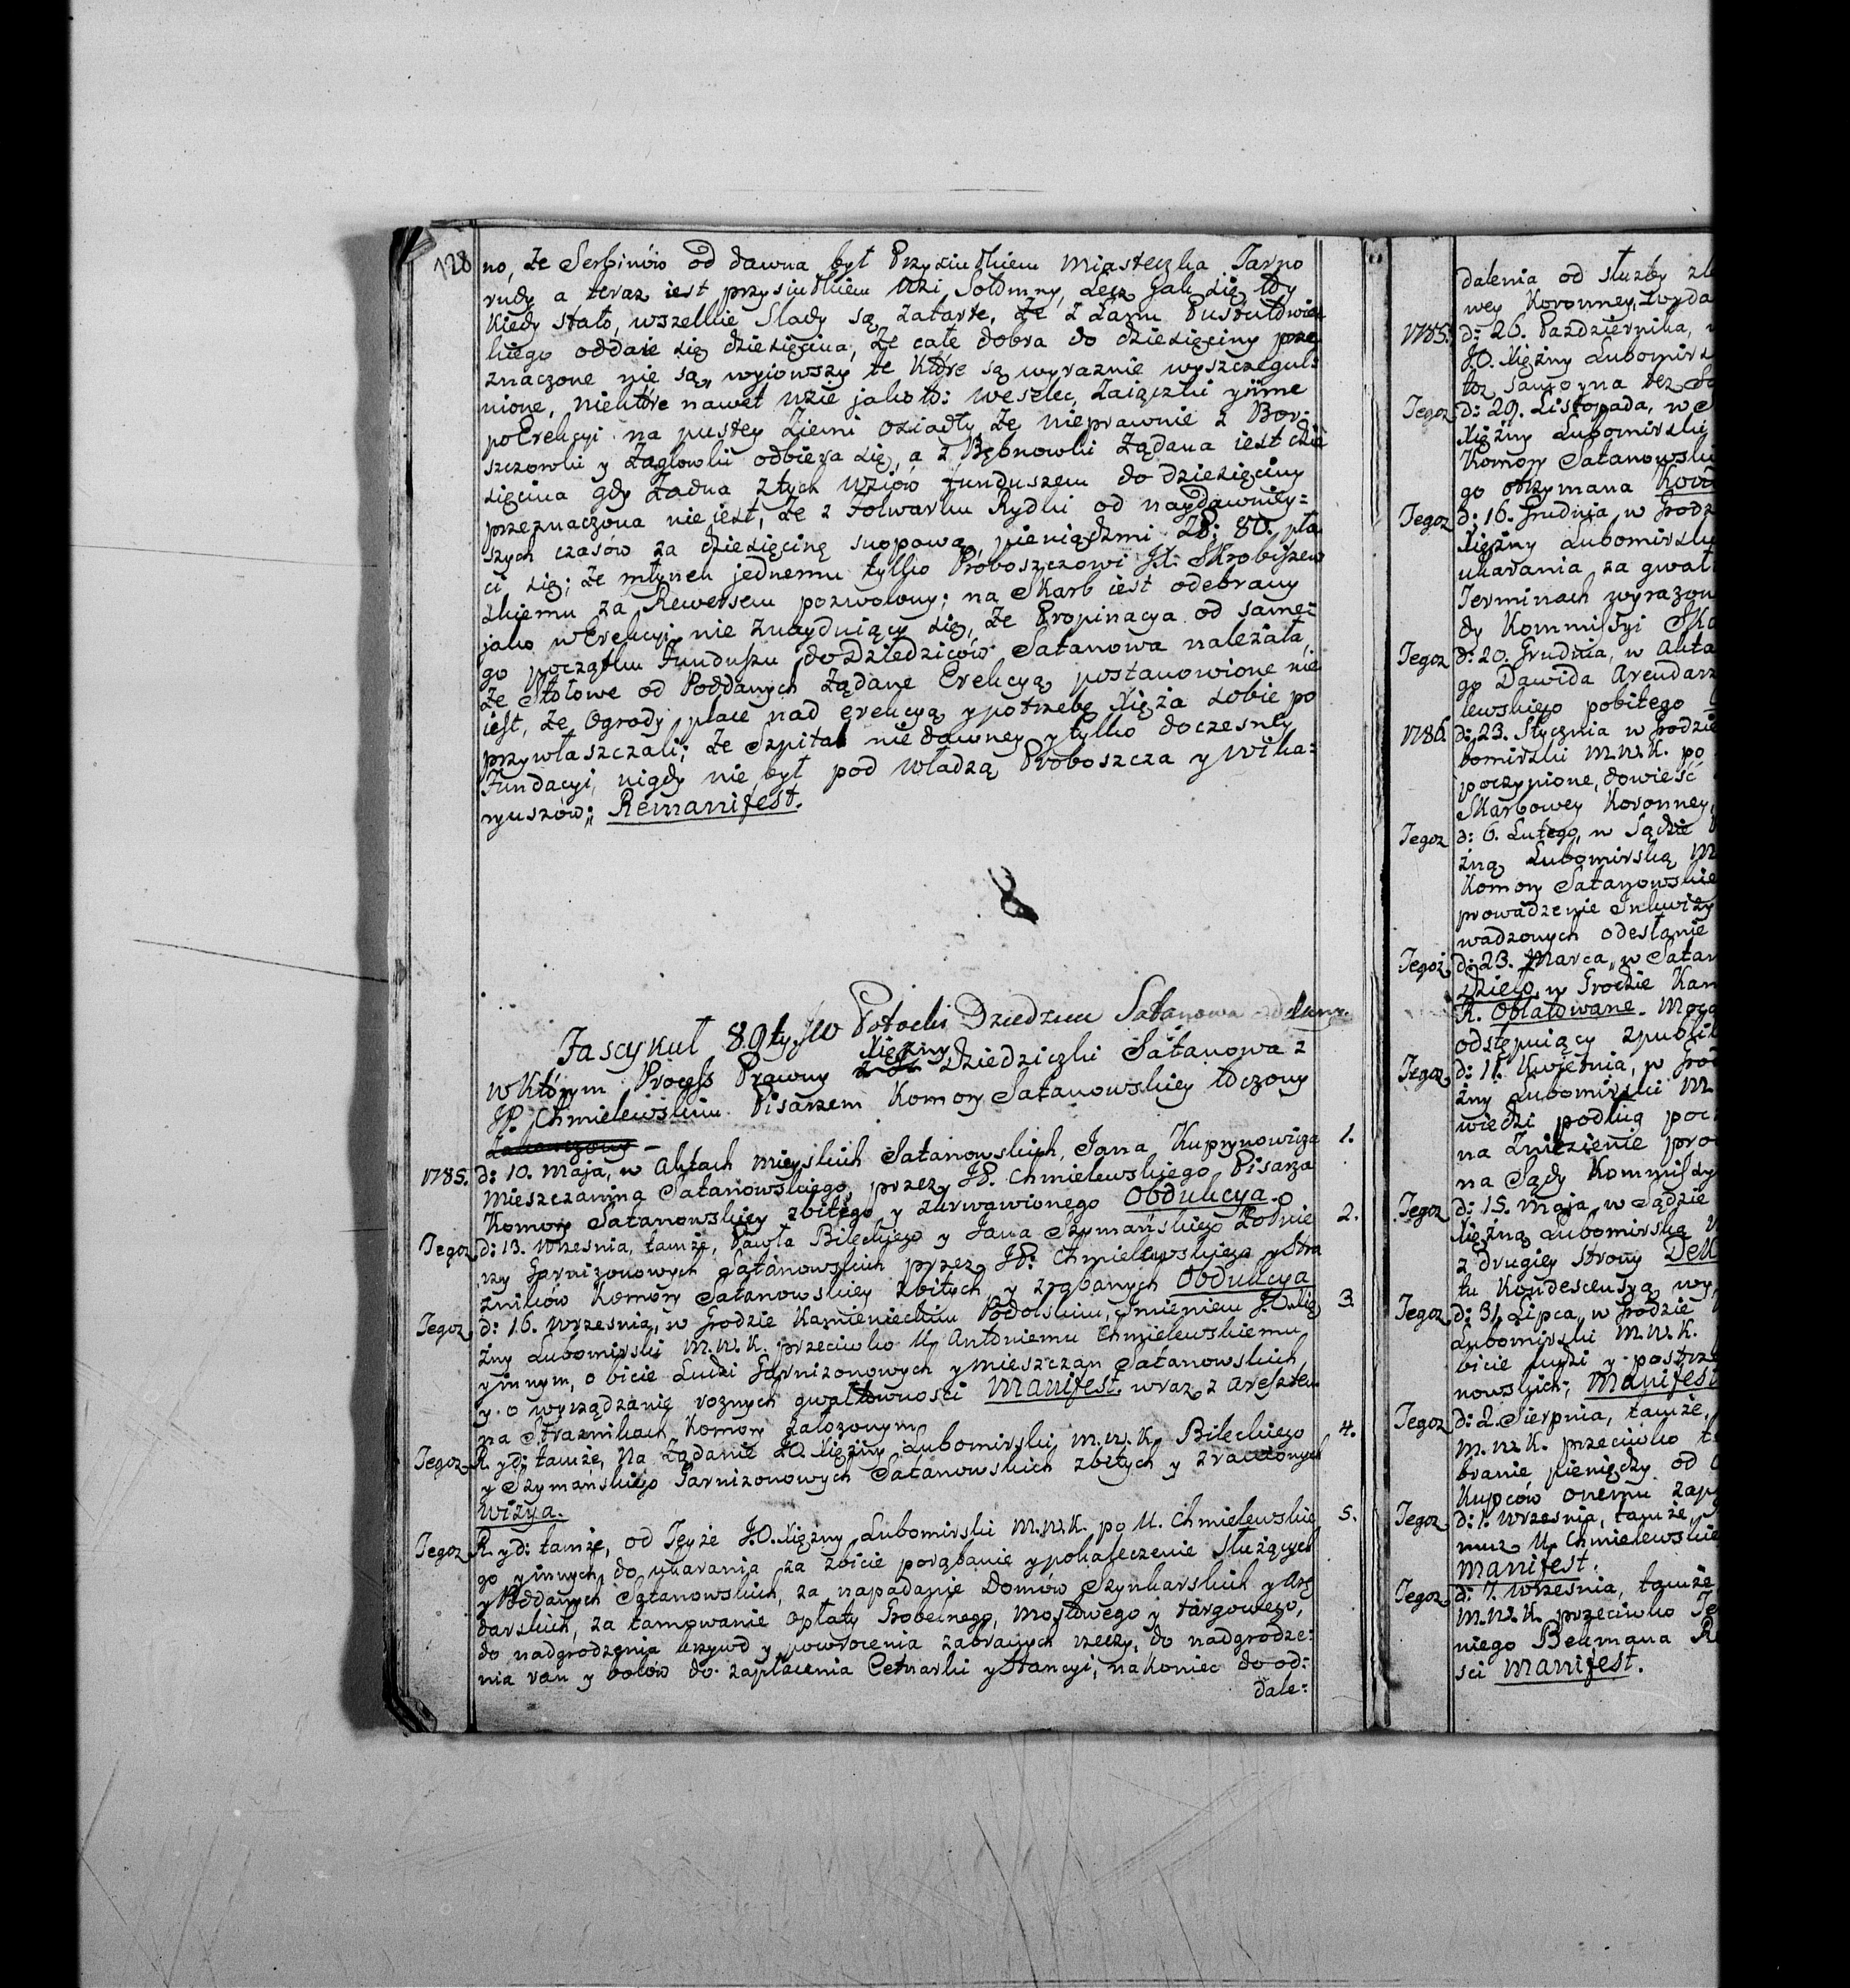 128
no, że Serbinów od dawna był Przysiułkiem Miasteczka Tarno
rudy a teraz iest przysiułkiem Wsi Sołdmny, Lecz jak się tdy
kiedy stało, wszelkie Slady są zatarte, że z Łanu
kiego oddaie się dziesięcina, że całe dobra do dziesięciny prze
znaczone nie są, wyiowszy te które są wyraznie wyszczegul:
nione, niektóre nawet Wsie jako to: Weselec, Zaiączki y inne
po Erekcyi na pustey Ziemi osiadły, że nieprawnie z Bor:
szczowki y Zagłowki odbiera się, a z Bębnowki żądana iest dzie
sięcina gdy żadna z tych Wsiów funduszem do dziesięciny
przeznaczona nie jest, że z Folwarku Rydki od naydawniey=
szych czasów za dziesięcinę snopową, pieniądzmi Zł: 80. pła
ci się; że młynek jednemu tylko Proboszczowi JX: Skrobiszew
skiemu za Rewersem pozwolony; na Skarb iest odebrany
jako w Erekcyi nie znayduiący się, że Propinacya od same=
go początku Funduszu do Dziedziców Satanowa należała,
że Stołowe od Poddanych żądane Erekcyą postanowione nie
iest, że Ogrody, place nad erekcyą y potrzebę Xięża sobie po
przywłaszczali; że Szpital niedawney y tylko doczesney
Fundacyi, nigdy nie był pod władzą Proboszcza y Wika:
ryuszów; Remanifest.
Fascykuł 89ty JW Potocki Dziedzic Satanowa
w którym Process Prawny Xiężny Dziedziczki Satanowa z
JP. Chmielewskim Pisarzem Komory Satanowskiey tdczony
1785. d: 10. Maja, w Aktach Mieyskich Satanowskich, Jana Kuprynowicza 1.
Mieszczanina Satanowskiego, przez JP. Chmielewskiego Pisarza
Komory Satanowskiey zbitego y zkrwawionego Obdukcya.
Tegoz d: 13. Wrzesnia, tamże, Pawła Bileckiego y Jana Szymańskiego Żołnie 2.
rzy Garnizonowych Satanowskich przez JP: Chmielewskiego y Stra
żników Komory Satanowskiey zbitych, y zrąbanych Obdukcya
Tegoz d: 16. Wrzesnia, w Grodzie Kamienieckim Podolskim, Imieniem J.O. Xię 3.
żny Lubomirski M.W.K. przeciwko U. Antoniemu Chmielewskiemu
y innym, o bicie Ludzi Garnizonowych y mieszczan Satanowskich,
y o wyrządzanie roznych gwałtowności Manifest. wraz z aresztem
na Straznikach Komory założonym
Tegoz R. y d: tamże, Na żądanie J.O. Xiężny Lubomirski M.W.K. Bileckiego 4.
y Szymańskiego Garnizonowych Satanowskich zbitych y zranionych
Wizya.
Tegoz R. y d: tamże, od Teyże J.O. Xiężny Lubomirski M.W.K. po U. Chmielewskie 5.
go y innych, do ukarania za zbicie porąbanie y pokaleczenie Służących
y Poddanych Satanowskich, za napadanie Domów Szynkarskich y Arę
darskich, za tamowanie Opłaty Grobelnego, Mostowego y targowego,
do nadgrodzenia krzywd y powrocenia zabranych rzeczy, do nadgrodze:
nia ran y bolów do zapłacenia Cetnarki y Stancyi, nakoniec do od:
dale:
dalenia od służby
wey Koronney,
1785. d: 26. Pazdziernika,
J.O. Xiężny Lubomirs
Tegoz d: 29. Listopada, w
Xiężny Lubomirski
Komory Satanowski
go otrzymana
Tegoz d: 16. Grudnia, w Grodz
Xiężny Lubomirski
ukarania za gwał
Terminach wyrazon
dy Kommissyi
Tegoz d: 20. Grudnia, w Akta
go Dawida Arendarz
lewskiego pobitego
1786. d: 23. Stycznia w Grodzie
bomirski M.W.K. po
poczynione, dowieść
Skarbowey Koronney,
Tegoz d: 6. Lutego, w Sądzie
żną Lubomirską
Komory Satanowskie
prowadzenie Inkwizy
wadzonych odesłanie
Tegoż d: 23. Marca, w Satan
w Grodzie Kam
R. Oblatowane.
odstępuiący z publi
Tegoz d: 11. Kwietnia, w Gro
żny Lubomirski M
wiedzi podług
na Zniżienie pro
na Sądy Kommissy
Tegoz d: 15. Maja, w Sądzie
Xiężną Lubomirską
z drugiey strony
tu Kondescensyą
Tegoz d: 31. Lipca, w Grodzie
Lubomirski M.W.K.
bicie ludzi y postrze
nowskich; Manifest
Tegoz d: 2. Sierpnia, tamże,
M.W.K. przeciwko
branie pieniędzy od
Kupców onemu
Tegoz d: 1. Wrzesnia, tamże,
muz U. Chmielewskie
Manifest.
Tegoz d: 7. Wrzesnia, tamże
M.W.K. przeciwko
niego Bekmana
ści Manifest.